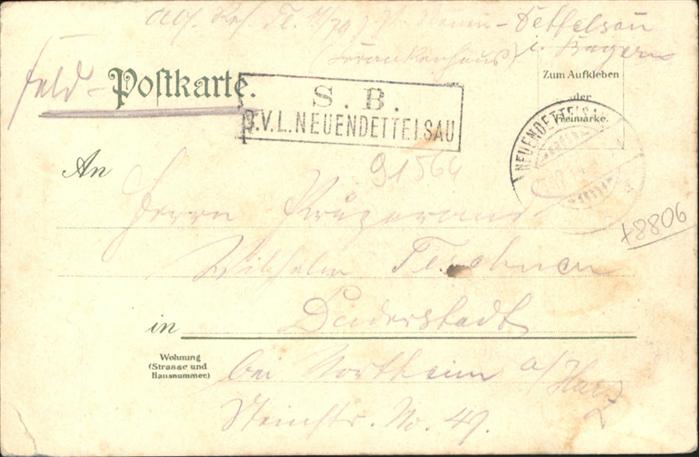 Neuen-Dettelsau
(Krankenhaus) i. Bayern
Feld- Postkarte.
S. B.
S.V.L. NEUENDETTELSAU
Zum Aufkleben
der
Freimarke.
NEUENDETTELSAU
91564
+8806
An
Herrn
Wilhelm
in Duderstadt
Wohnung
(Strasse und
Hausnummer)
bei Northeim a/Harz
Steinstr. No. 49.